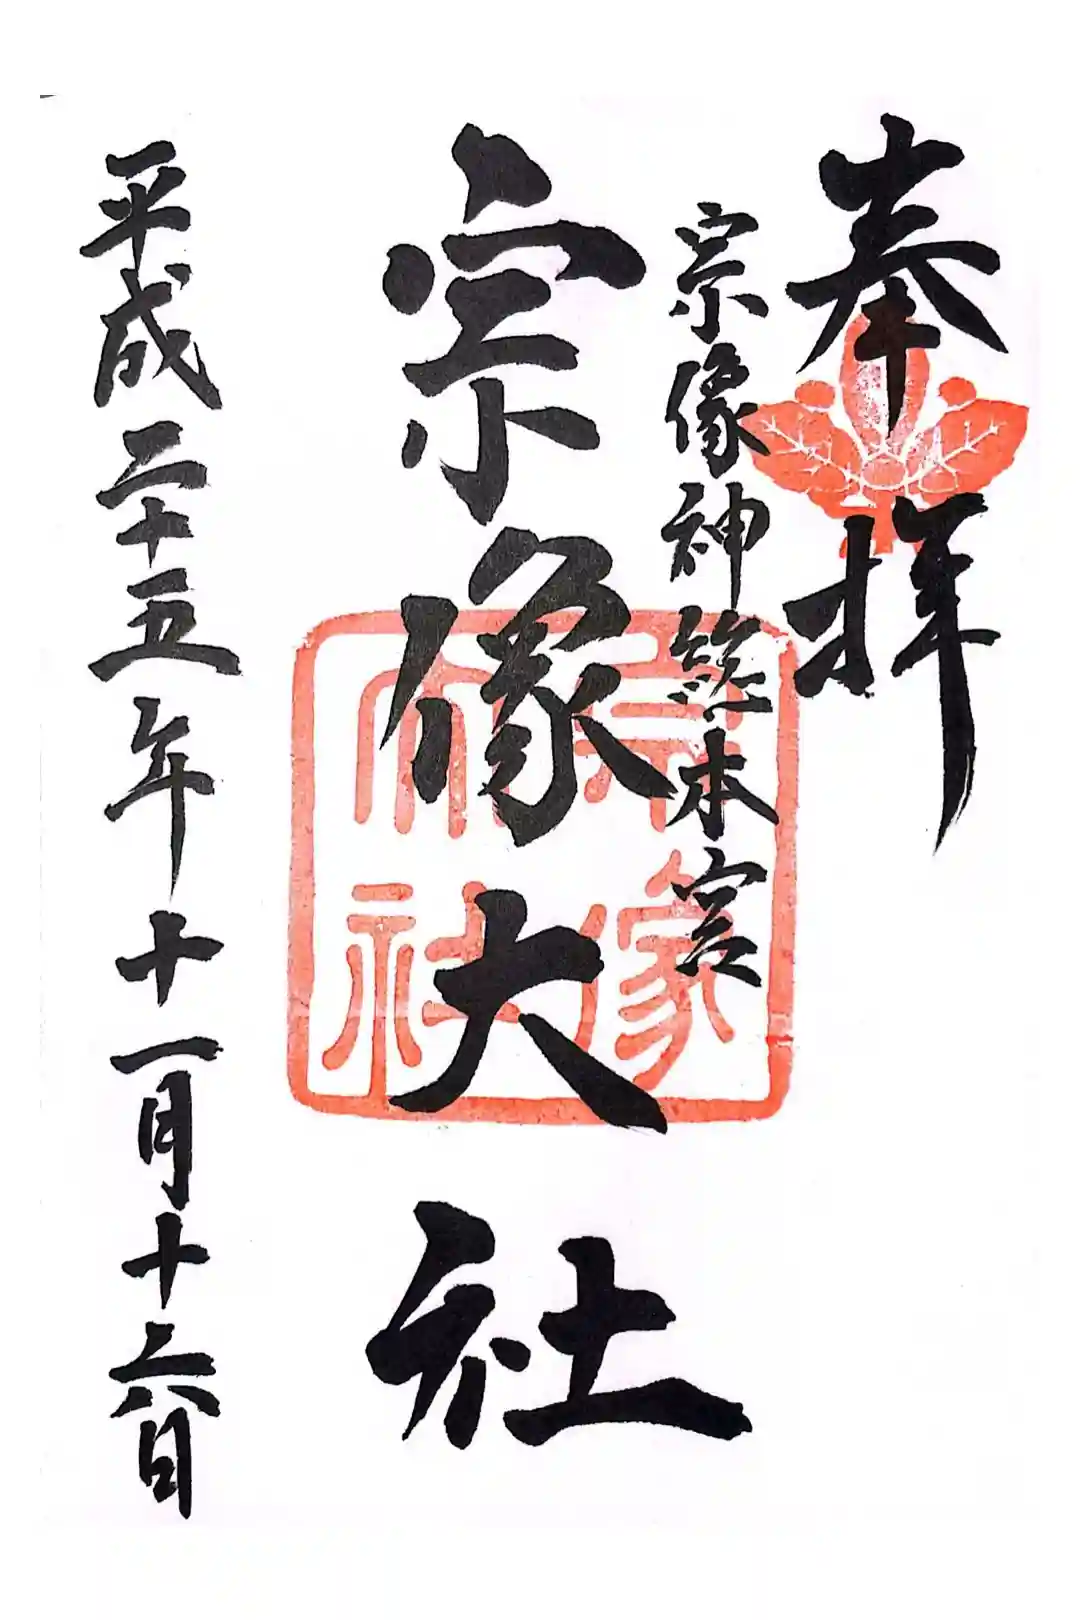 奉拝
宗像神総本宮
宗像大社
宗像大社
平成二十五年十一月十六日